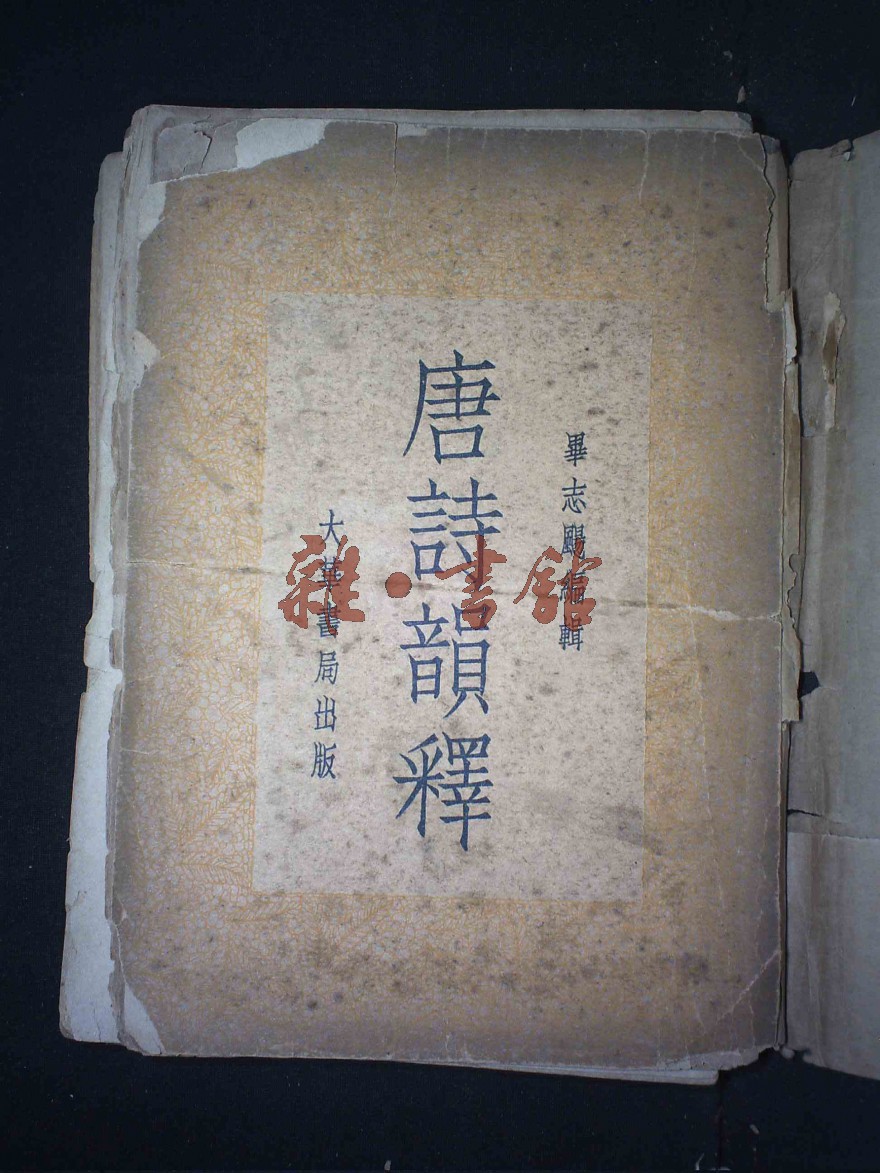 畢志颺編輯
唐詩韻釋
大華書局出版
雜·書館